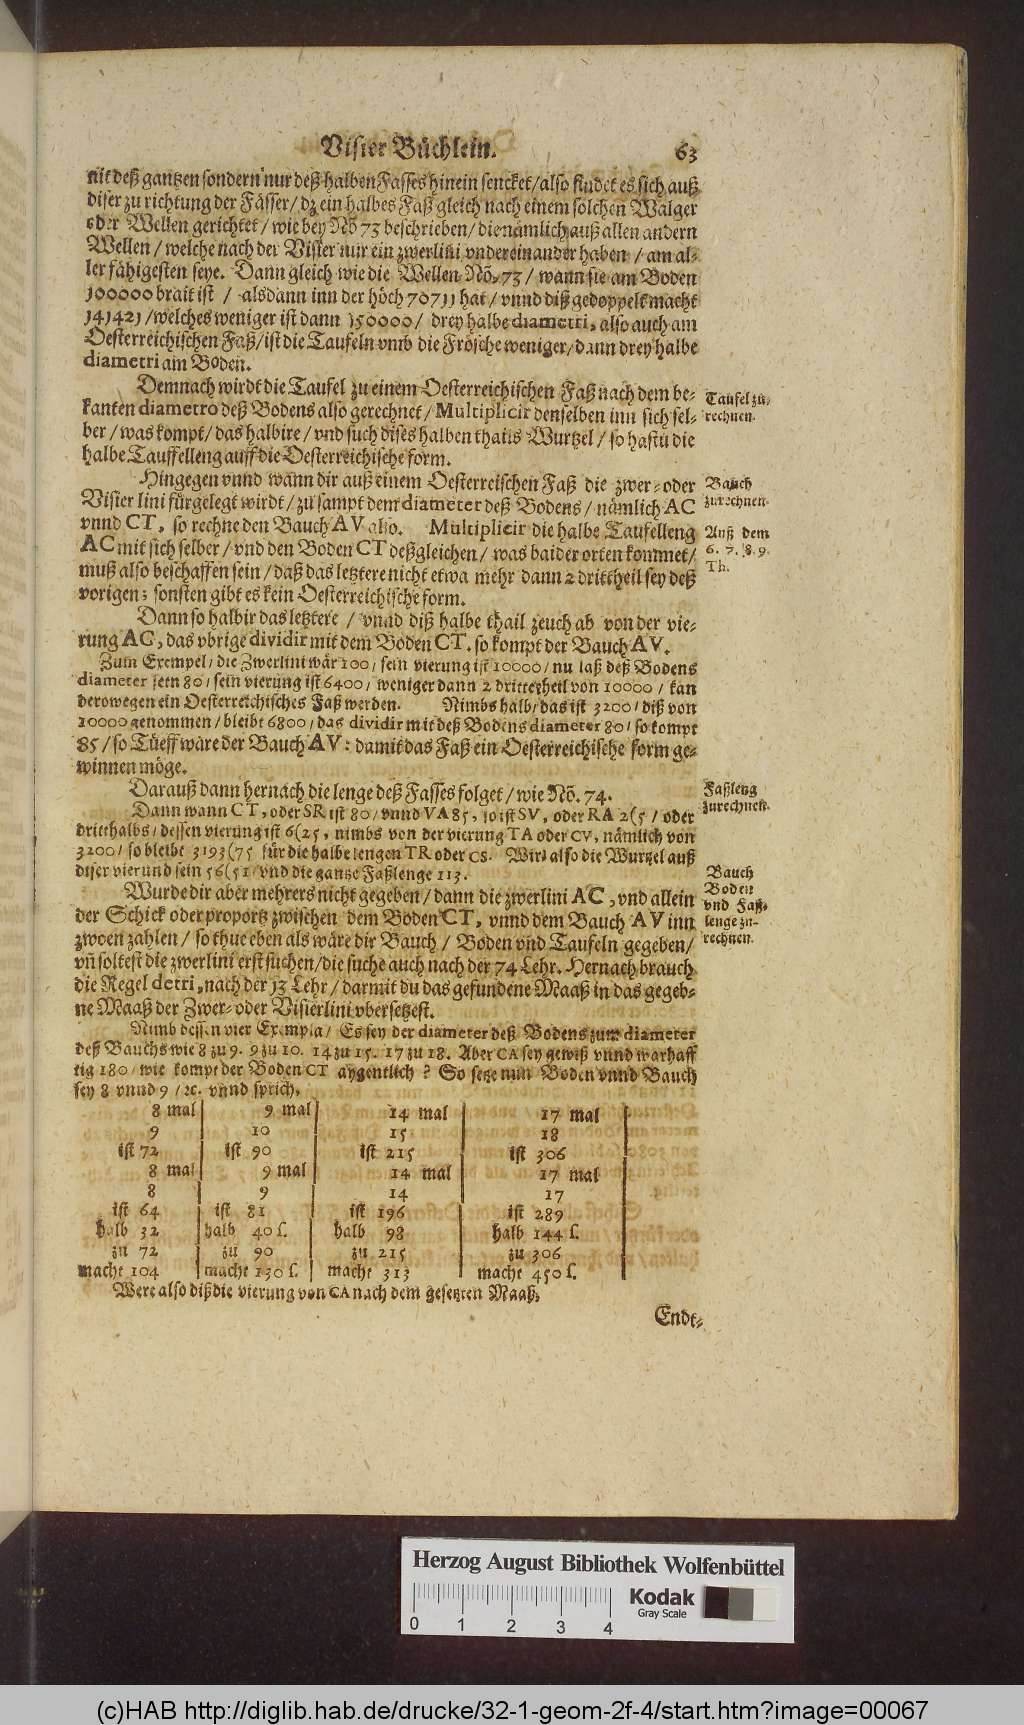 Visier Büchlein. 63
nit deß gantzen sondern nur deß halben Fasses hinein sencket/also findet es sich auß
diser zu richtung der Fässer/dz ein halbes Faß gleich nach einem solchen Walger
oder Wellen gerichtet/wie bey Nõ 73 beschrieben/die nämlich auß allen andern
Wellen/welche nach der Visier nur ein zwerlini vndereinander haben/am al-
ler fähigesten seye. Dann gleich wie die Wellen Nõ. 73/wann sie am Boden
100000 brait ist/alsdann inn der höch 70711 hat/vnnd diß gedoppelt macht
141421/welches weniger ist dann 150000/drey halbe diametri, also auch am
Oesterreichischen Faß/ist die Taufeln vmb die Frösche weniger/dann drey halbe
diametri am Boden.
Demnach wirdt die Taufel zu einem Oesterreichischen Faß nach dem be-
kanten diametro deß Bodens also gerechnet/Multiplicir denselben inn sich sel-
ber/was kompt/das halbire/vnd such dises halben thails Wurtzel/so hastu die
halbe Tauffelleng auff die Oesterreichische form.
Taufel zu-
rechnen.
Hingegen vnnd wann dir auß einem Oesterreischen Faß die zwer- oder
Visier lini fürgelegt wirdt/zu sampt dem diameter deß Bodens/nämlich AC
vnnd CT, so rechne den Bauch AV also. Multiplicir die halbe Taufelleng
AC mit sich selber/vnd den Boden CT deßgleichen/was baider orten kommet/
muß also beschaffen sein/daß das letztere nicht etwa mehr dann 2 drittheil sey deß
vorigen; sonsten gibt es kein Oesterreichische form.
Bauch
zurechnen.
Auß dem
6. 7. 8. 9.
Th.
Dann so halbir das letztere/vnnd diß halbe thail zeuch ab von der vie-
rung AC, das vbrige dividir mit dem Boden CT. so kompt der Bauch AV.
Zum Exempel/die Zwerlini wär 100/sein vierung ist 10000/nu laß deß Bodens
diameter sein 80/sein vierung ist 6400/weniger dann 2 drittetheil von 10000/kan
derowegen ein Oesterreichisches Faß werden. Nimbs halb/das ist 3200/diß von
10000 genommen/bleibt 6800/das dividir mit deß Bodens diameter 80/so kompt
85/so Tüeff wäre der Bauch AV: damit das Faß ein Oesterreichische form ge-
winnen möge.
Darauß dann hernach die lenge deß Fasses folget/wie Nõ. 74.
Dann wann CT, oder SR ist 80/vnnd VA 85, so ist SV, oder RA 2(5/oder
dritthalbs/dessen vierung ist 6(25, nimbs von der vierung TA oder CV, nämlich von
3200/so bleibt 3193(75 für die halbe lengen TR oder CS. Wird also die Wurtzel auß
diser vierund sein 56(51/vnd die gantze Faßlenge 113.
Faßleng
zurechnen.
Wurde dir aber mehrers nicht gegeben/dann die zwerlini AC, vnd allein
der Schick oder proportz zwischen dem Boden CT, vnnd dem Bauch AV inn
zwoen zahlen/so thue eben als wäre dir Bauch/Boden vnd Taufeln gegeben/
vñ soltest die zwerlini erst suchen/die suche auch nach der 74 Lehr. Hernach brauch
die Regel detri, nach der 13 Lehr/darmit du das gefundene Maaß in das gegeb-
ne Maaß der Zwer- oder Visierlini vbersetzest.
Bauch
Boden
vnd Faß-
lenge zu-
rechnen.
Nimb dessen vier Exempla/Es sey der diameter deß Bodens zum diameter
deß Bauchs wie 8 zu 9. 9 zu 10. 14 zu 15. 17 zu 18. Aber CA sey gewiß vnnd warhaff
tig 180/wie kompt der Boden CT aygentlich? So setze nun Boden vnnd Bauch
sey 8 vnnd 9/ꝛc. vnnd sprich,
8 mal | 9 mal | 14 mal | 17 mal
9 | 10 | 15 | 18
ist 72 | ist 90 | ist 215 | ist 306
8 mal | 9 mal | 14 mal | 17 mal
8 | 9 | 14 | 17
ist 64 | ist 81 | ist 196 | ist 289
halb 32 | halb 40 s. | halb 98 | halb 144 s.
zu 72 | zu 90 | zu 215 | zu 306
macht 104 | macht 130 s. | macht 313 | macht 450 s.
Were also diß die vierung von CA nach dem gesetzten Maaß,
Endt-
Herzog August Bibliothek Wolfenbüttel
0 1 2 3 4
Kodak
Gray Scale
(c)HAB http://diglib.hab.de/drucke/32-1-geom-2f-4/start.htm?image=00067